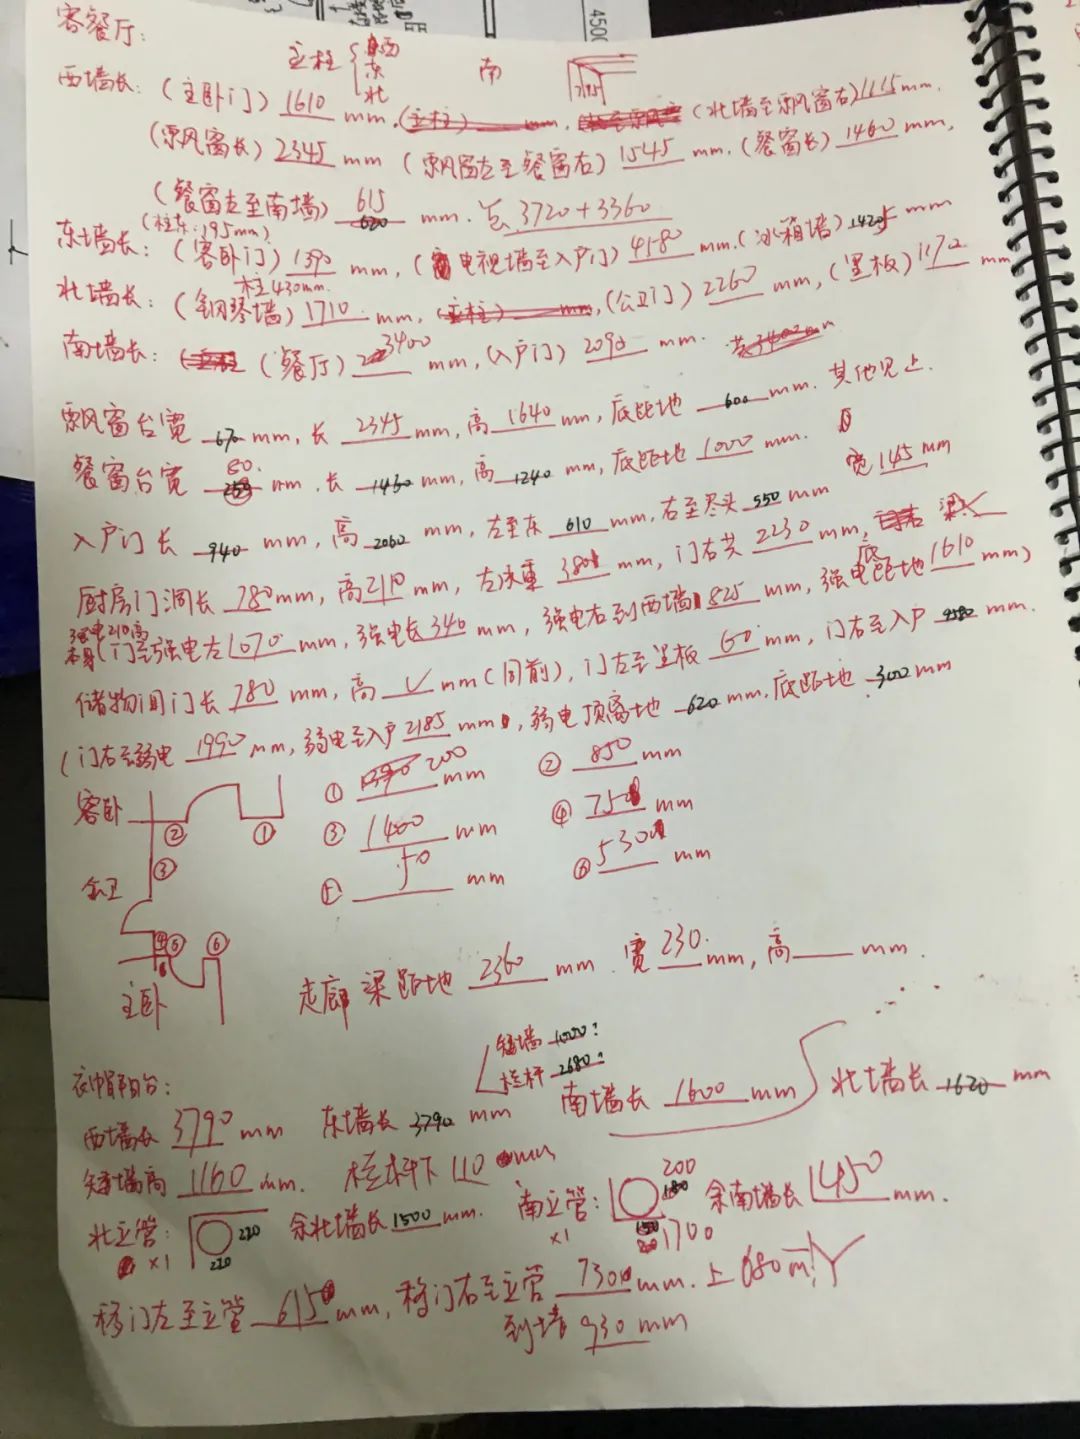 客餐厅:
4500
主柱 西 东 北 南
西墙长: (主卧门) 1610 mm. (北墙至飘风窗右) 1115 mm.
(飘风窗长) 2345 mm (飘风窗左至餐窗右) 1545 mm. (餐窗长) 1460 mm,
(餐窗左至南墙) 615 mm. 总 3720+3360
(柱东: 195mm)
东墙长: (客卧门) 1390 mm, (电视墙至入户门) 4180 mm. (冰箱墙) 1425 mm
柱430mm.
北墙长: (钢琴墙) 1710 mm, (公卫门) 2260 mm, (黑板) 1170 mm
南墙长: (餐厅) 3400 mm, (入户门) 2090 mm.
飘风窗台宽 670 mm, 长 2345 mm, 高 1640 mm, 底距地 600 mm. 其他见上.
餐窗台宽 80. mm. 长 1460 mm, 高 1240 mm, 底距地 1000 mm.
入户门长 940 mm, 高 2060 mm, 左至东 610 mm, 右至尽头 550 mm 宽 145 mm
厨房门洞长 780 mm, 高 2110 mm, 左 380 mm, 门右共 2230 mm,
强电210高
(门至强电左 1070 mm, 强电长 340 mm, 强电右到西墙 825 mm, 强电底距地 1610 mm)
储物间门长 780 mm, 高 √ mm (同前), 门左至黑板 60 mm, 门右至入户 mm.
(门右至弱电 1990 mm, 弱电至入户 2185 mm, 弱电顶离地 620 mm. 底距地 300 mm
客卧 ② ① ① 200 mm ② 850 mm
③ ③ 1400 mm ④ 750 mm
公卫 ⑤ 50 mm ⑥ 530 mm
④ ⑤ ⑥
主卧 走廊梁距地 2360 mm. 宽 230. mm, 高 mm.
矮墙 1000?
栏杆 2680?
阳台:
西墙长 3790 mm 东墙长 3790 mm 南墙长 1600 mm 北墙长 1620 mm
矮墙高 1160 mm. 栏杆下 110 mm
北立管: ×1 220 210 余北墙长 1500 mm. 南立管: ×1 200 180 1700 余南墙长 1450 mm.
移门左至立管 615 mm, 移门右至立管 730 mm. 上 680
到墙 930 mm